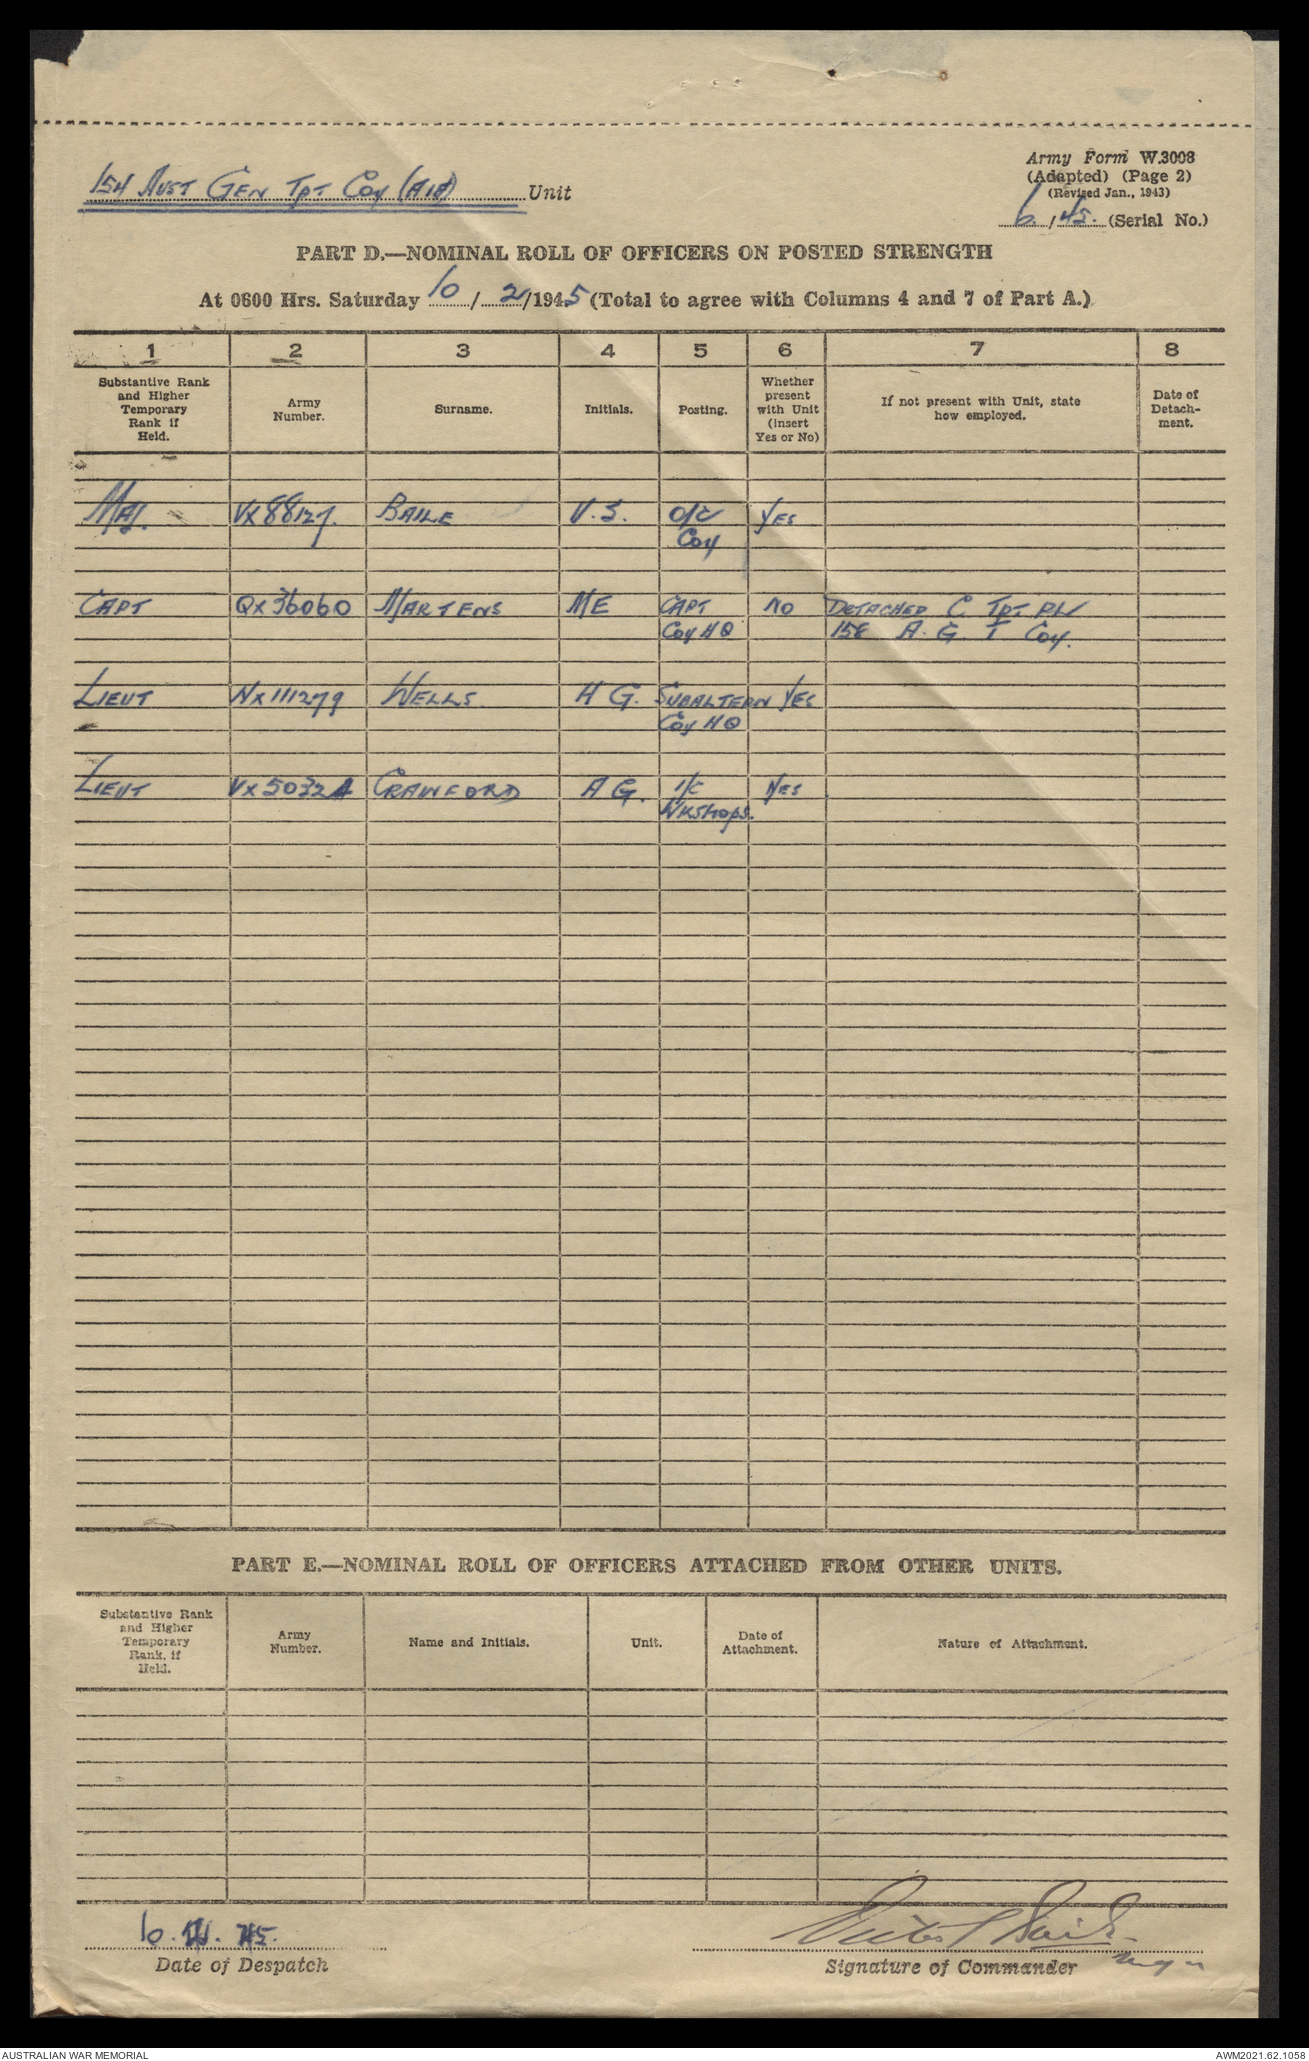 154 Aust Gen Tpt Coy (AIF) Unit
Army Form W.3008
(Adapted) (Page 2)
(Revised Jan., 1943)
6 / 45. (Serial No.)
PART D.—NOMINAL ROLL OF OFFICERS ON POSTED STRENGTH
At 0600 Hrs. Saturday 10 / 2 /1945 (Total to agree with Columns 4 and 7 of Part A.)
1 2 3 4 5 6 7 8
Substantive Rank and Higher Temporary Rank if Held. Army Number. Surname. Initials. Posting. Whether present with Unit (insert Yes or No) If not present with Unit, state how employed. Date of Detachment.
MAJ. VX88127. BAILE V.S. O/C YES
Coy
CAPT QX36060 MARTENS ME CAPT NO DETACHED C TPT PL
Coy HQ 158 A. G T Coy.
LIEUT NX111279 WELLS H G. SUBALTERN YES
Coy HQ
LIEUT CRAWFORD A G. I/C YES
WKSHOPS.
PART E.—NOMINAL ROLL OF OFFICERS ATTACHED FROM OTHER UNITS.
Substantive Rank and Higher Temporary Rank, if Held. Army Number. Name and Initials. Unit. Date of Attachment. Nature of Attachment.
Date of Despatch
Signature of Commander
AUSTRALIAN WAR MEMORIAL
AWM2021.62.1058